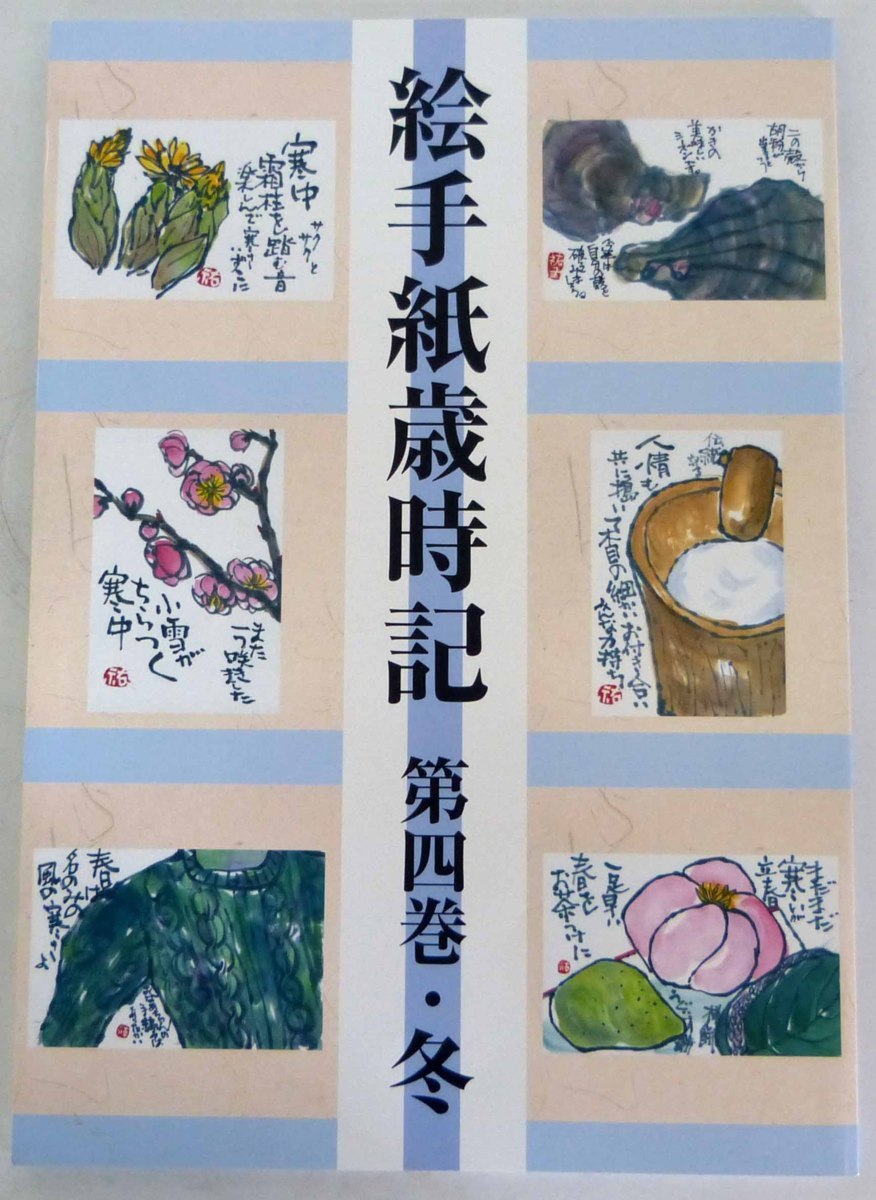 絵手紙歳時記
第四巻・冬
寒中
サクサクと
霜柱を踏む音
楽しんで寒
祐
二の
かきの
美味しい
自身の
また
一つ咲きました
小雪が
ちらつく
寒中
祐
人情も
共に搗いて木目の細かいお付き合い
みんな力持ち
祐
春は
名のみの
風の寒さよ
まだまだ
寒いが
立春
一足早い
春を
お茶うけに